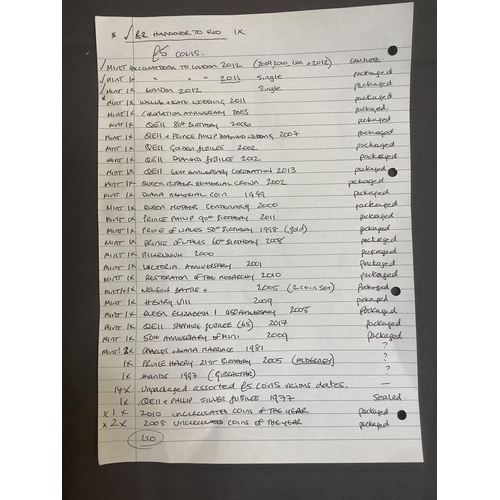 * ✓ £2 HANDOVER TO RIO 1X
£5 COINS.
✓ MINT 4X COUNTDOWN TO LONDON 2012 (2009, 2010, 2011 + 2012)
✓ MINT 1X " " " 2011 Single packaged
✓ MINT 1X LONDON 2012 Single packaged
MINT 1X WILLIAM + KATE WEDDING 2011 packaged
MINT 1X CORONATION ANNIVERSARY 2003 packaged
MINT 1X QEII 80th BIRTHDAY 2006 packaged
MINT 1X QEII + PRINCE PHILIP DIAMOND WEDDING 2007 packaged
MINT 1X QEII GOLDEN JUBILEE 2002 packaged
MINT 1X QEII DIAMOND JUBILEE 2012 packaged
MINT 1X QEII 60th ANNIVERSARY CORONATION 2013 packaged
MINT 1X QUEEN MOTHER MEMORIAL CROWN 2002 packaged
MINT 1X DIANA MEMORIAL COIN 1999 packaged
MINT 1X QUEEN MOTHER CENTENARY 2000 packaged
MINT 1X PRINCE PHILIP 90th BIRTHDAY 2011 packaged
MINT 1X PRINCE OF WALES 50th BIRTHDAY 1998 (gold) packaged
MINT 1X PRINCE OF WALES 60th BIRTHDAY 2008 packaged
MINT 1X MILLENNIUM 2000 packaged
MINT 1X VICTORIA ANNIVERSARY 2001 packaged
MINT 1X RESTORATION OF THE MONARCHY 2010 packaged
MINT 1X NELSON BATTLE + 2005 (2 COIN SET) Packaged
MINT 1X HENRY VIII 2009 packaged
MINT 1X QUEEN ELIZABETH I 450 ANNIVERSARY 2008 packaged
MINT 1X QEII SAPPHIRE JUBILEE (65) 2017 packaged
MINT 1X 50th ANNIVERSARY OF MINI 2009 packaged
MINT? 2X CHARLES + DIANA MARRIAGE 1981 ?
1X PRINCE HARRY 21st BIRTHDAY 2005 (ALDERNEY) ?
1X HANDS 1997 (GIBRALTAR) ?
14X Unpackaged assorted £5 coins various dates. —
1X QEII + PHILIP SILVER JUBILEE 1977 Sealed.
x 1X 2010 UNCIRCULATED COINS OF THE YEAR packaged
x 2X 2008 UNCIRCULATED COINS OF THE YEAR packaged